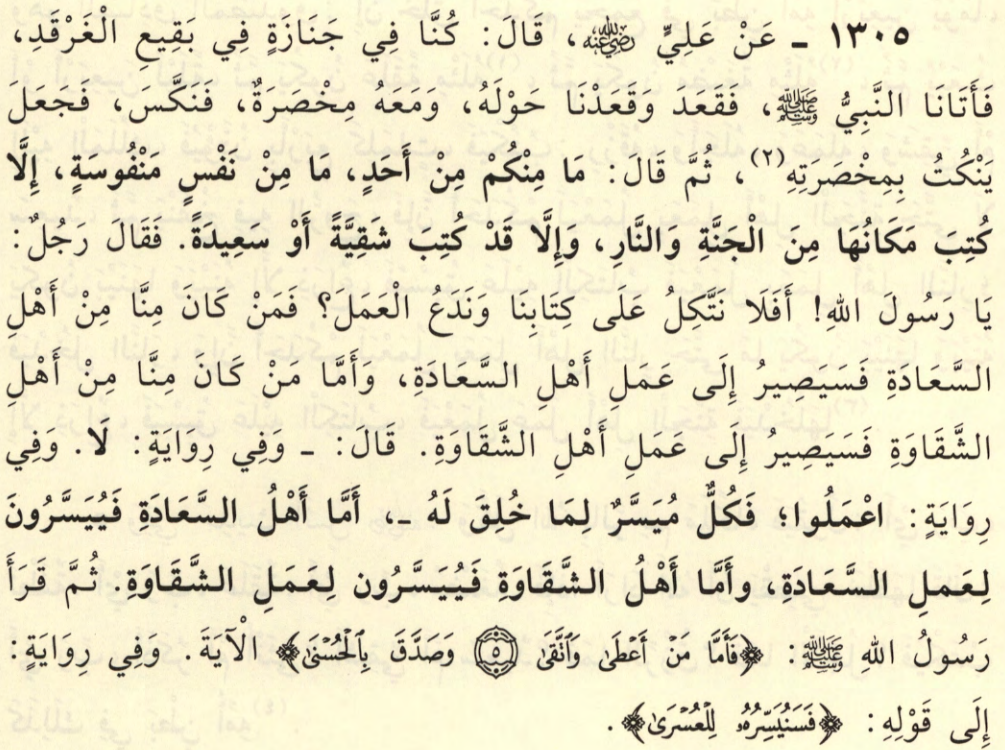 ١٣٠٥ ـ عَنْ عَلِيٍّ رضي الله عنه، قَالَ: كُنَّا فِي جَنَازَةٍ فِي بَقِيعِ الْغَرْقَدِ،
فَأَتَانَا النَّبِيُّ ﷺ، فَقَعَدَ وَقَعَدْنَا حَوْلَهُ، وَمَعَهُ مِخْصَرَةٌ، فَنَكَّسَ، فَجَعَلَ
يَنْكُتُ بِمِخْصَرَتِهِ(٢)، ثُمَّ قَالَ: مَا مِنْكُمْ مِنْ أَحَدٍ، مَا مِنْ نَفْسٍ مَنْفُوسَةٍ، إِلَّا
كُتِبَ مَكَانُهَا مِنَ الْجَنَّةِ وَالنَّارِ، وَإِلَّا قَدْ كُتِب شَقِيَّةً أَوْ سَعِيدَةً. فَقَالَ رَجُلٌ:
يَا رَسُولَ اللهِ! أَفَلَا نَتَّكِلُ عَلَى كِتَابِنَا وَنَدَعُ الْعَمَلَ؟ فَمَنْ كَانَ مِنَّا مِنْ أَهْلِ
السَّعَادَةِ فَسَيَصِيرُ إِلَى عَمَلِ أَهْلِ السَّعَادَةِ، وَأَمَّا مَنْ كَانَ مِنَّا مِنْ أَهْلِ
الشَّقَاوَةِ فَسَيَصِيرُ إِلَى عَمَلِ أَهْلِ الشَّقَاوَةِ. قَالَ: ـ وَفِي رِوَايَةٍ: لَا. وَفِي
رِوَايَةٍ: اعْمَلُوا؛ فَكُلٌّ مُيَسَّرٌ لِمَا خُلِقَ لَهُ ـ: أَمَّا أَهْلُ السَّعَادَةِ فَيُيَسَّرُونَ
لِعَمَلِ السَّعَادَةِ، وَأَمَّا أَهْلُ الشَّقَاوَةِ فَيُيَسَّرُون لِعَمَلِ الشَّقَاوَةِ. ثُمَّ قَرَأَ
رَسُولُ اللهِ ﷺ: ﴿فَأَمَّا مَنْ أَعْطَىٰ وَٱتَّقَىٰ ۝٥ وَصَدَّقَ بِٱلْحُسْنَىٰ﴾ الْآيَةَ. وَفِي رِوَايَةٍ:
إِلَى قَوْلِهِ: ﴿فَسَنُيَسِّرُهُۥ لِلْعُسْرَىٰ﴾.